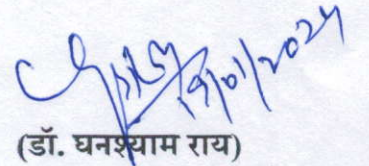 19/01/2024
(डॉ. घनश्याम राय)